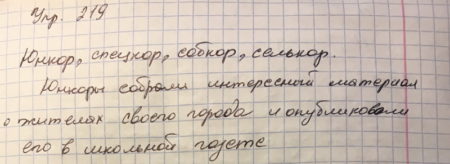 Упр. 219
Юнкор, спецкор, собкор, селькор.
Юнкоры собрали интересный материал
о жителях своего города и опубликовали
его в школьной газете